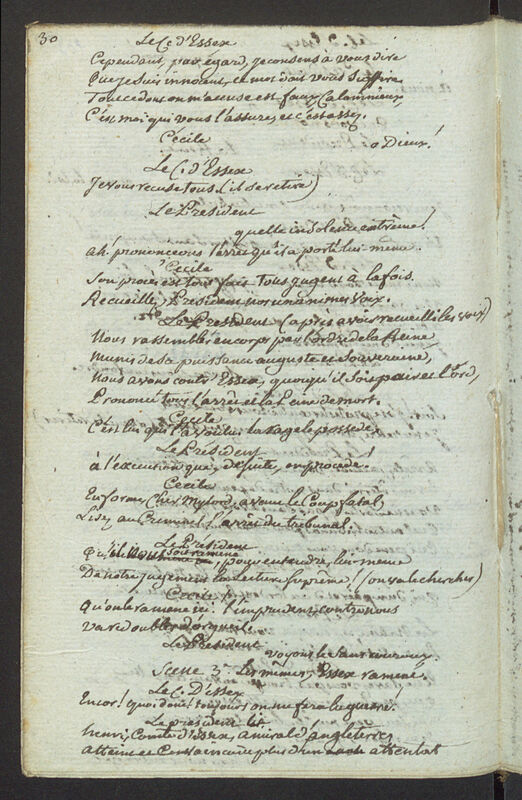 30
Le C. d'Essex
Cependant, par égard, je consens à vous dire
Que je suis innocent, ce mot doit vous suffire.
Tout ce dont on m'accuse est faux, Calomnieux,
C'est moi qui vous l'assure, et c'est assez.
Cecile
o Dieux!
Le C. d'Essex
Je vous recuse tous. (il se retire)
Le President
quelle insolence extrême!
ah! prononcons l'arrêt qu'il a porté lui-même.
Cecile
Son procès est tout fait. tous jugent à la fois.
Recueillez, President, nos unanimes voix.
Le President (après avoir recueilli les voix)
Nous rassemblés en corps par l'ordre de la Reine
Munis de sa puissance auguste et souveraine,
Nous avons contr'Essex, quoiqu'il soit pair et Lord,
Prononcé tous l'arrêt et la Peine de mort.
Cecile
C'est lui qui l'a voulu. la rage le possede.
Le President
à l'execution que, de suite, on procede!
Cecile
En forme, Cher Mylord, avant le Coup fatal,
Lisez au Criminel l'arrêt du tribunal.
Le President
Qu'il soit ramené, pour entendre, lui-même
De notre jugement la lecture suprême. (on va le chercher)
Cecile
Qu'on le ramene ici. l'imprudent, contre nous
Va redoubler d'orgueil.
Le President
voyons le sans couroux.
Scene 3e. Les mêmes, Essex ramené.
Le C. D'Essex
Encor! quoi donc! toujours on me fera la guerre!
Le president lit
henri, Comte d'Essex, amiral d'angleterre,
atteint et Convaincu de plus d'un attentat